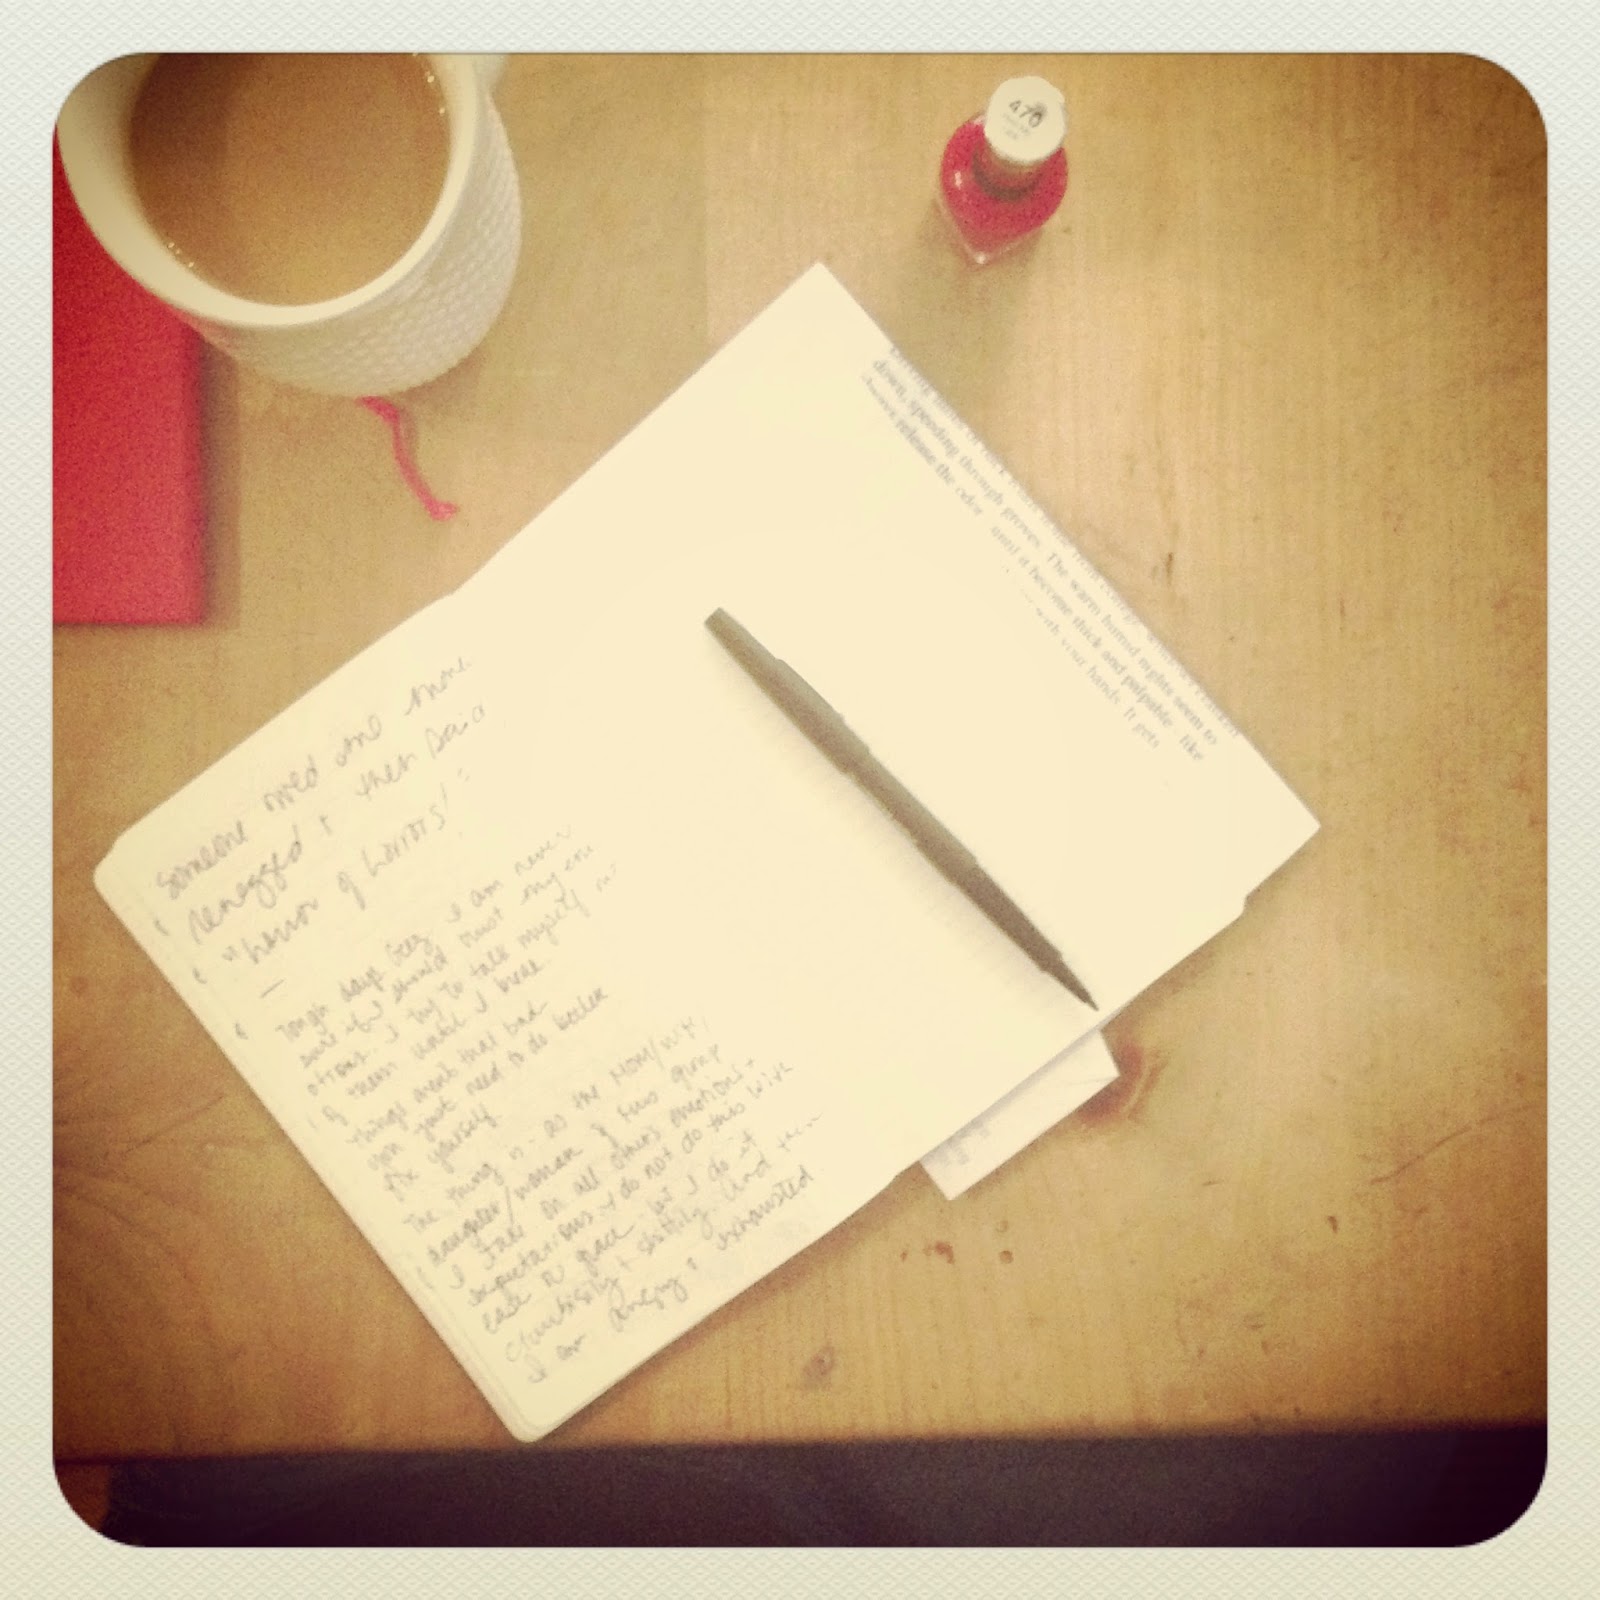 470
down, speeding through groves. The warm humid nights seem to
release the odor until it become thick and palpable like
with your hands. It gets
Someone one more
renegged + then said
"horror of horrors!"
—
Tough days. I am never
sure if I should trust my
I try to talk myself
of them until I break
things arent that bad
you just need to do better
fix yourself.
The thing is - as the MOM/WIFE/
daughter/woman of this group
I take on all others emotions +
expectations + do not do this with
ease or grace but I do it
+ shittily. And then
I am angry + exhausted